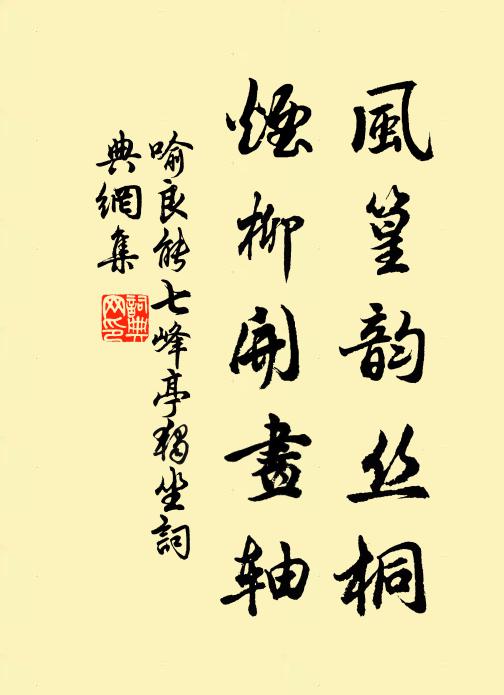 風篁韵丝桐
煙柳開畫轴
喻良能七峰亭獨坐詞
典網集
詞典網印